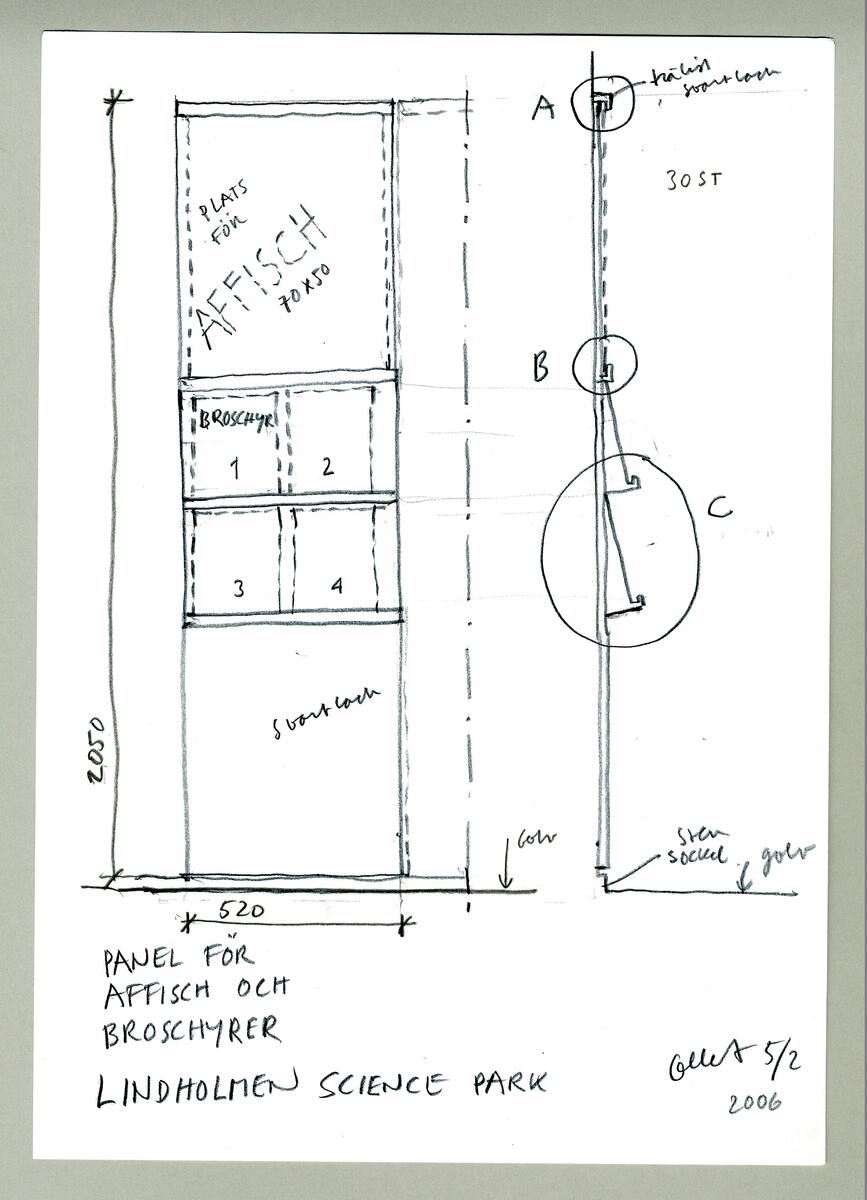 A
trälist
svart lack
30 ST
PLATS
FÖR
AFFISCH
70 x 50
B
BROSCHYR
1
2
C
3
4
svart lack
2050
golv
sten
sockel
golv
520
PANEL FÖR
AFFISCH OCH
BROSCHYRER
LINDHOLMEN SCIENCE PARK
5/2
2006